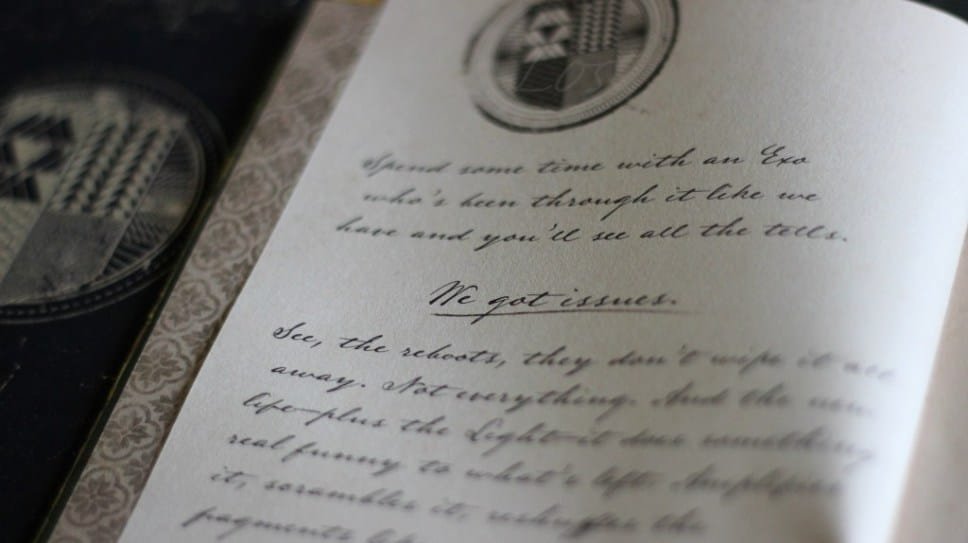 Spend some time with an Exo
who's been through it like we
have and you'll see all the tells.
We got issues.
See, the reboots, they don't wipe it all
away. Not everything. And the new
life—plus the Light—it does something
real funny to what's left. Amplifies
it, scrambles it, reshuffles the